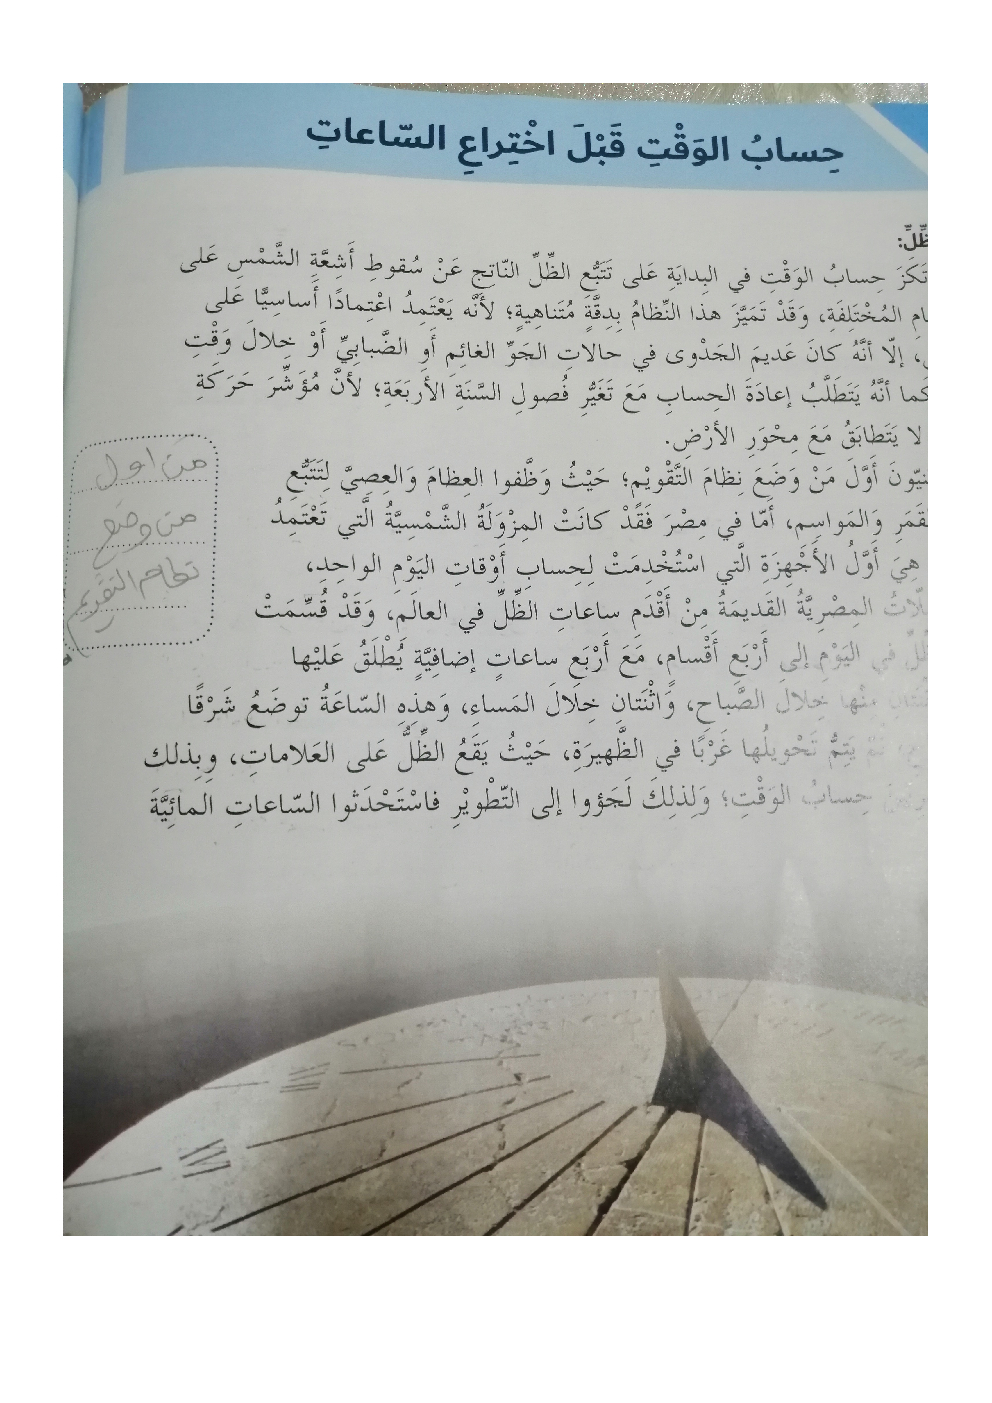 حِسابُ الوَقْتِ قَبْلَ اخْتِراعِ السّاعاتِ
حِسابُ الوَقْتِ في البِدايَةِ عَلى تَتَبُّعِ الظِّلِّ النّاتِجِ عَنْ سُقوطِ أَشِعَّةِ الشَّمْسِ عَلى
المُخْتَلِفَةِ، وَقَدْ تَمَيَّزَ هذا النِّظامُ بِدِقَّةٍ مُتَناهِيةٍ؛ لأَنَّه يَعْتَمِدُ اعْتِمادًا أَساسِيًّا عَلى
إلّا أنَّهُ كانَ عَديمَ الجَدْوى في حالاتِ الجَوِّ الغائِمِ أَوِ الضَّبابِيِّ أَوْ خِلالَ وَقْتِ
كما أنَّهُ يَتَطَلَّبُ إعادَةَ الحِسابِ مَعَ تَغَيُّرِ فُصولِ السَّنَةِ الأَربَعَةِ؛ لأنَّ مُؤَشِّرَ حَرَكَةِ
لا يَتَطابَقُ مَعَ مِحْوَرِ الأَرْضِ.
أَوَّلَ مَنْ وَضَعَ نِظامَ التَّقْويْمِ؛ حَيْثُ وَظَّفوا العِظامَ وَالعِصِيَّ لِتَتَبُّعِ
وَالمَواسِمِ، أمّا في مِصْرَ فَقَدْ كانَتْ المِزْوَلَةُ الشَّمْسِيَّةُ الَّتي تَعْتَمِدُ
هِيَ أَوَّلُ الأَجْهِزَةِ الَّتي اسْتُخْدِمَتْ لِحِسابِ أَوْقاتِ اليَوْمِ الواحِدِ،
المِصْرِيَّةُ القَديمَةُ مِنْ أَقْدَمِ ساعاتِ الظِّلِّ في العالَمِ، وَقَدْ قُسِّمَتْ
في اليَوْمِ إلى أَرْبَعِ أَقْسامٍ، مَعَ أَرْبَعِ ساعاتٍ إضافِيَّةٍ يُطْلَقُ عَلَيْها
مِنْها خِلالَ الصَّباحِ، وَاثْنَتانِ خِلَالَ المَساءِ، وَهذِهِ السّاعَةُ توضَعُ شَرْقًا
ثُمَّ يَتِمُّ تَحْويلُها غَرْبًا في الظَّهيرَةِ، حَيْثُ يَقَعُ الظِّلُّ عَلى العَلاماتِ، وِبِذلك
حِسابُ الوَقْتِ؛ وَلِذلِكَ لَجَؤوا إلى التّطْويْرِ فاسْتَحْدَثوا السّاعاتِ المائِيَّةَ
من اول
من وضع
نظام التقويم